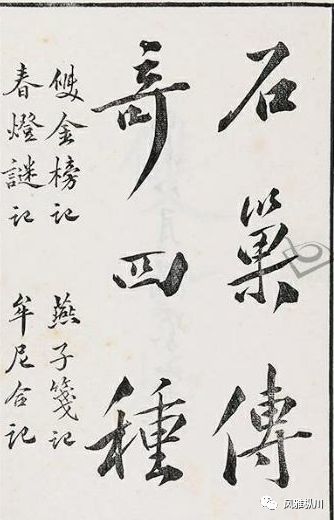 石巢傳
奇四種
雙金榜記
燕子箋記
春燈謎記
牟尼合記
风雅纵川